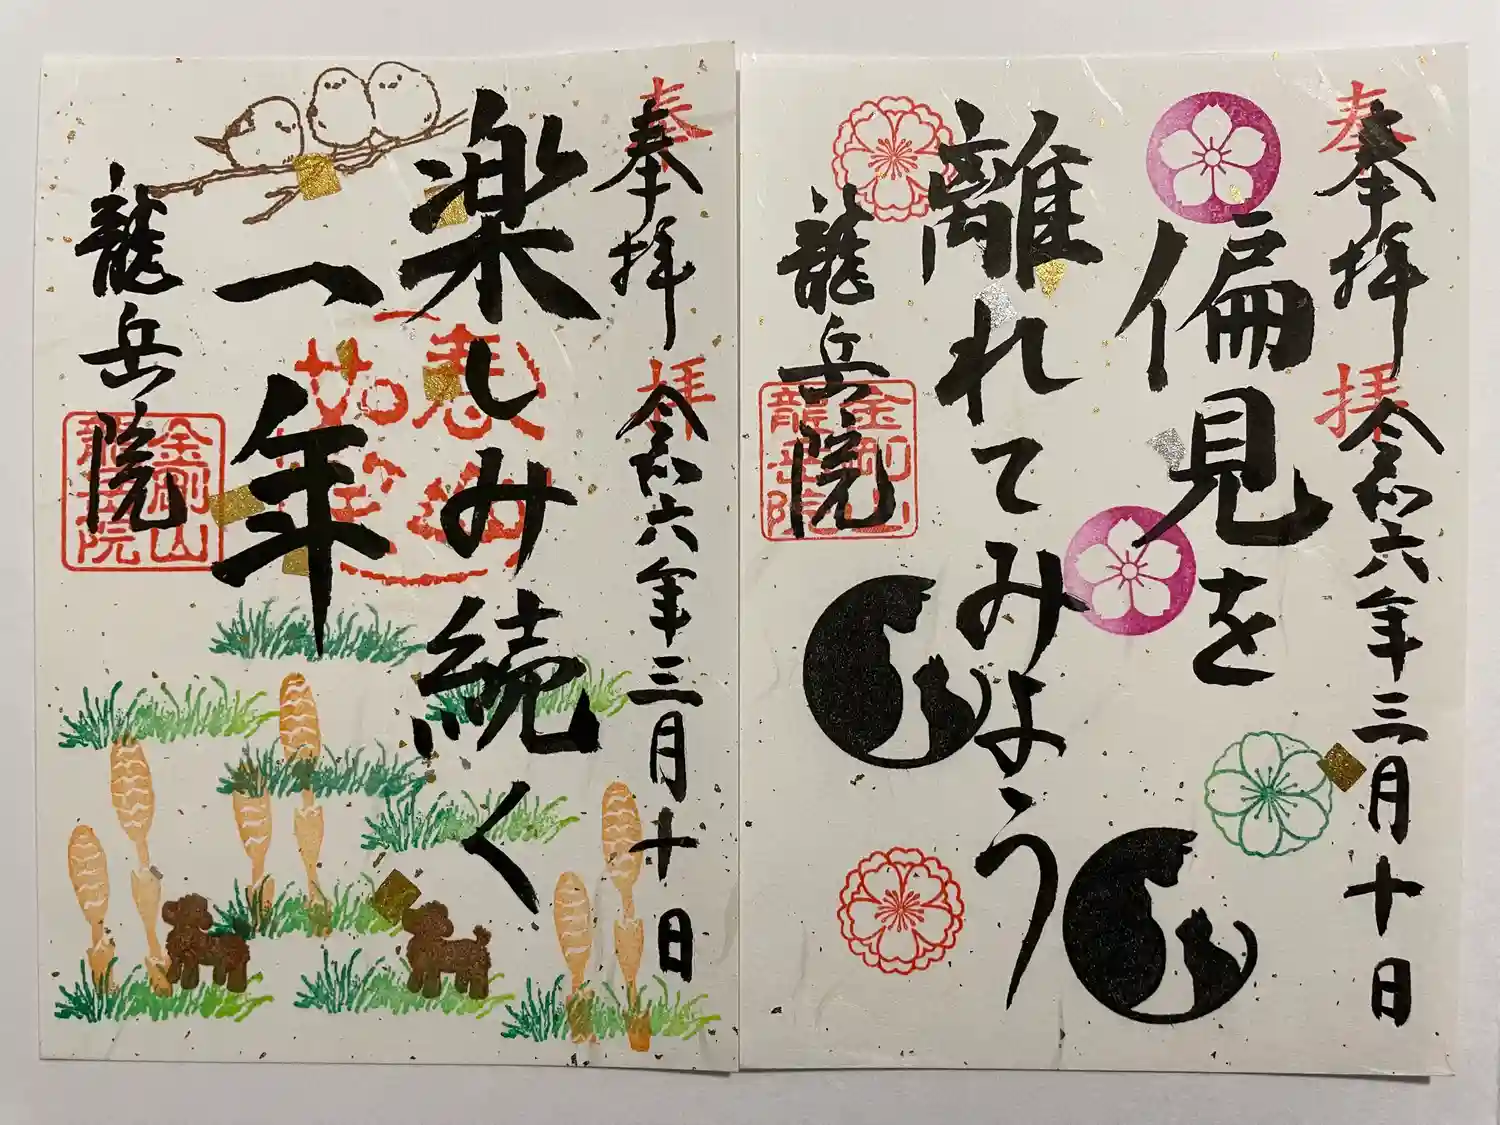 奉拝
奉拝 令和六年三月十日
偏見を
離れてみよう
龍岳院
金剛山
龍岳院
奉拝
奉拝 令和六年三月十日
楽しみ続く
一年
龍岳院
金剛山
龍岳院